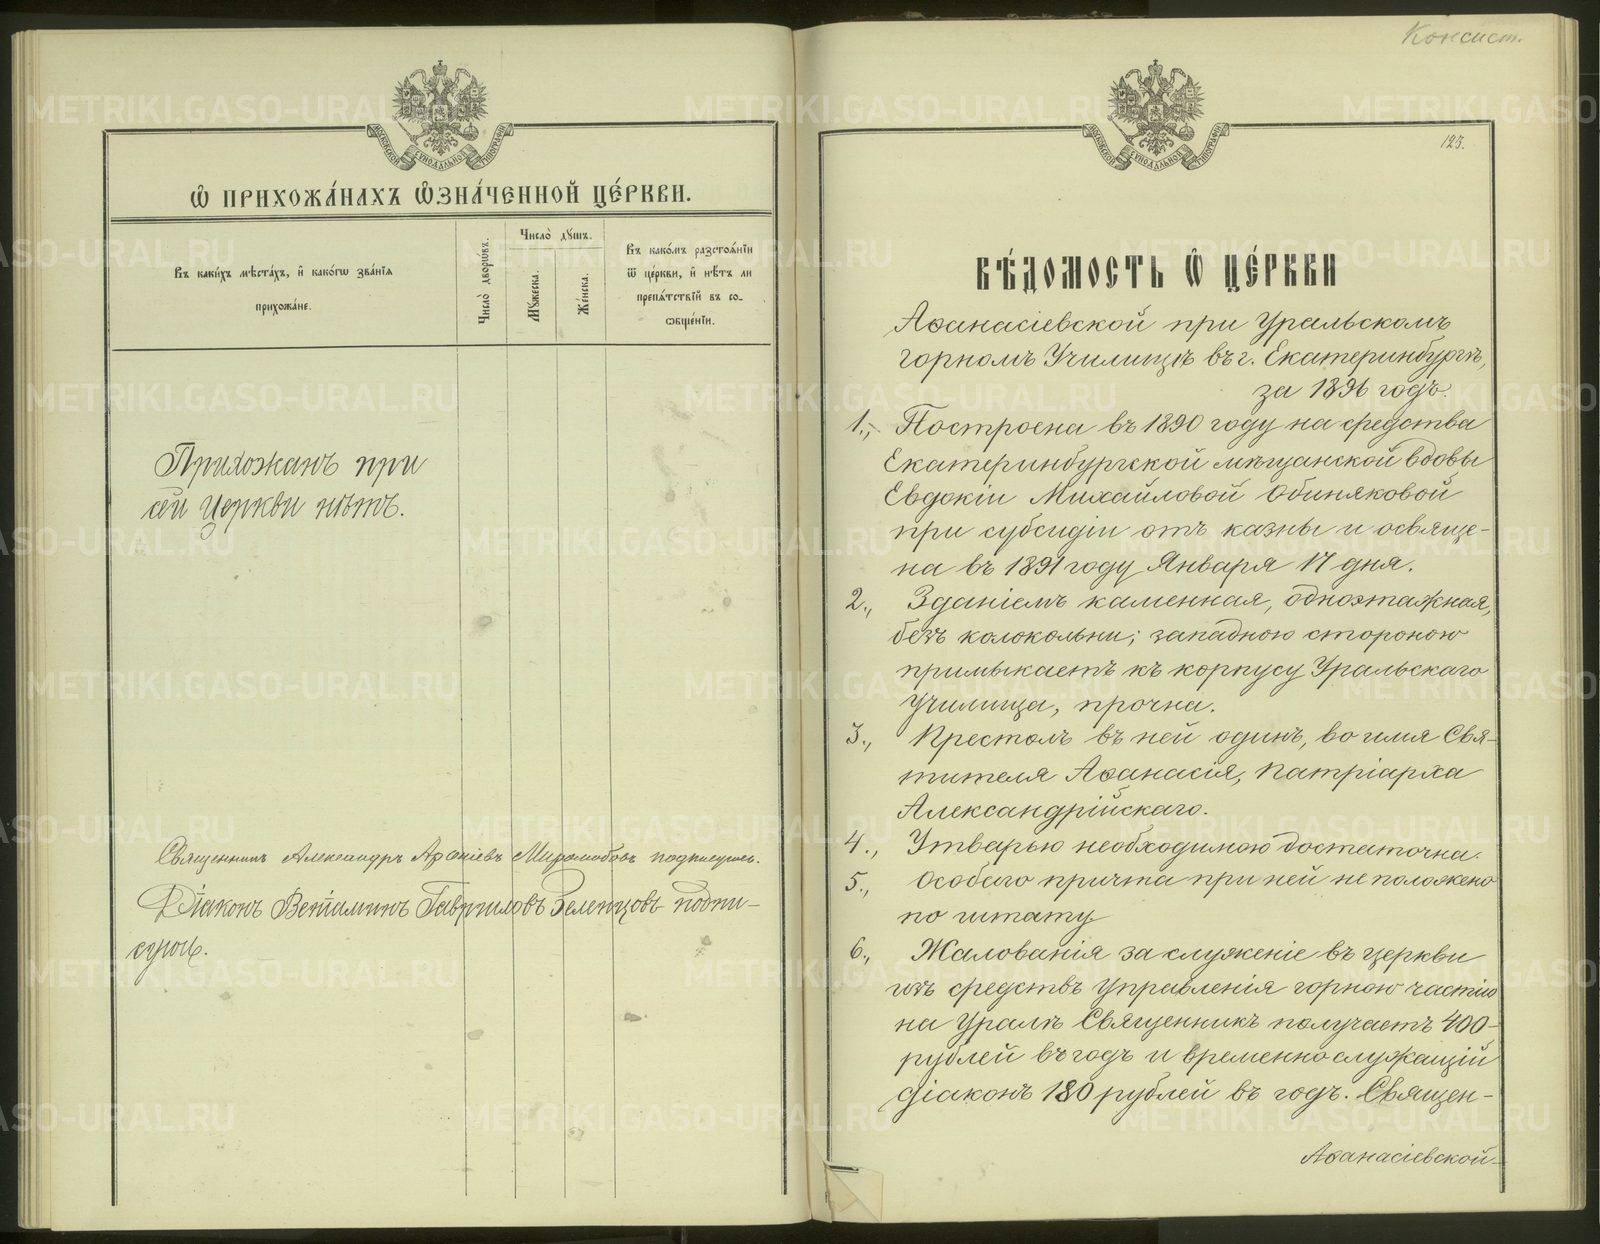 МОСКОВСКОЙ СѴНОДАЛЬНОЙ ТИПОГРАФІИ
Ѡ ПРИХОЖА́НАХЪ Ѡ҆ЗНА́ЧЕННОЙ ЦЕ́РКВИ.
Въ каки́хъ мѣста́хъ, и҆ како́гѡ зва́нїѧ
прихожа́не.
Число̀ дворѡ́въ.
Число̀ дꙋшъ.
Мꙋ́жеска.
Же́нска.
Въ како́мъ разстоѧ́нїи
ѿ це́ркви, и҆ нѣ́тъ ли
препѧ́тствїй въ со-
ѻбще́нїи.
Прихожанъ при
сей церкви нѣтъ.
Священникъ Александръ Миролюбовъ подписуюсь.
Дїаконъ Венїаминъ Гавриловъ Зеленцовъ подпи-
суюсь.
Консист.
МОСКОВСКОЙ СѴНОДАЛЬНОЙ ТИПОГРАФІИ
123.
ВѢ́ДОМОСТЬ Ѡ ЦЕ́РКВИ
Аѳанасіевской при Уральскомъ
горномъ Училищѣ въ г. Екатеринбургѣ,
за 1896 годъ.
1., Построена въ 1890 году на средства
Екатеринбургской мѣщанской вдовы
Евдокіи Михайловой Обиняковой
при субсидіи отъ казны и освяще-
на въ 1891 году Января 17 дня.
2., Зданіемъ каменная, одноэтажная,
безъ колокольни; западною стороною
примыкаетъ къ корпусу Уральскаго
Училища, прочна.
3., Престолъ въ ней одинъ, во имя Свя-
тителя Аѳанасія, Патріарха
Александрійскаго.
4., Утварью необходимою достаточна.
5., Особаго причта при ней не положено
по штату
6., Жалованія за служеніе въ церкви
изъ средствъ Управленія горною частію
на Уралѣ Священникъ получаетъ 400-
рублей въ годъ и временно служащій
діаконъ 180 рублей въ годъ. Священ-
Аѳанасіевской
METRIKI.GASO-URAL.RU